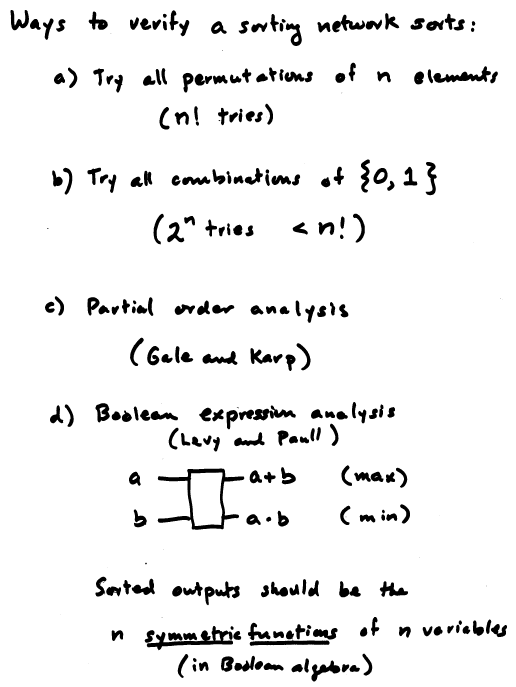 Ways to verify a sorting network sorts:
a) Try all permutations of n elements
(n! tries)
b) Try all combinations of {0, 1}
(2ⁿ tries < n!)
c) Partial order analysis
(Gale and Karp)
d) Boolean expression analysis
(Levy and Paull)
a a+b (max)
b a·b (min)
Sorted outputs should be the
n symmetric functions of n variables
(in Boolean algebra)